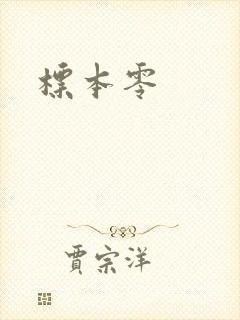 標本零
賈宗洋